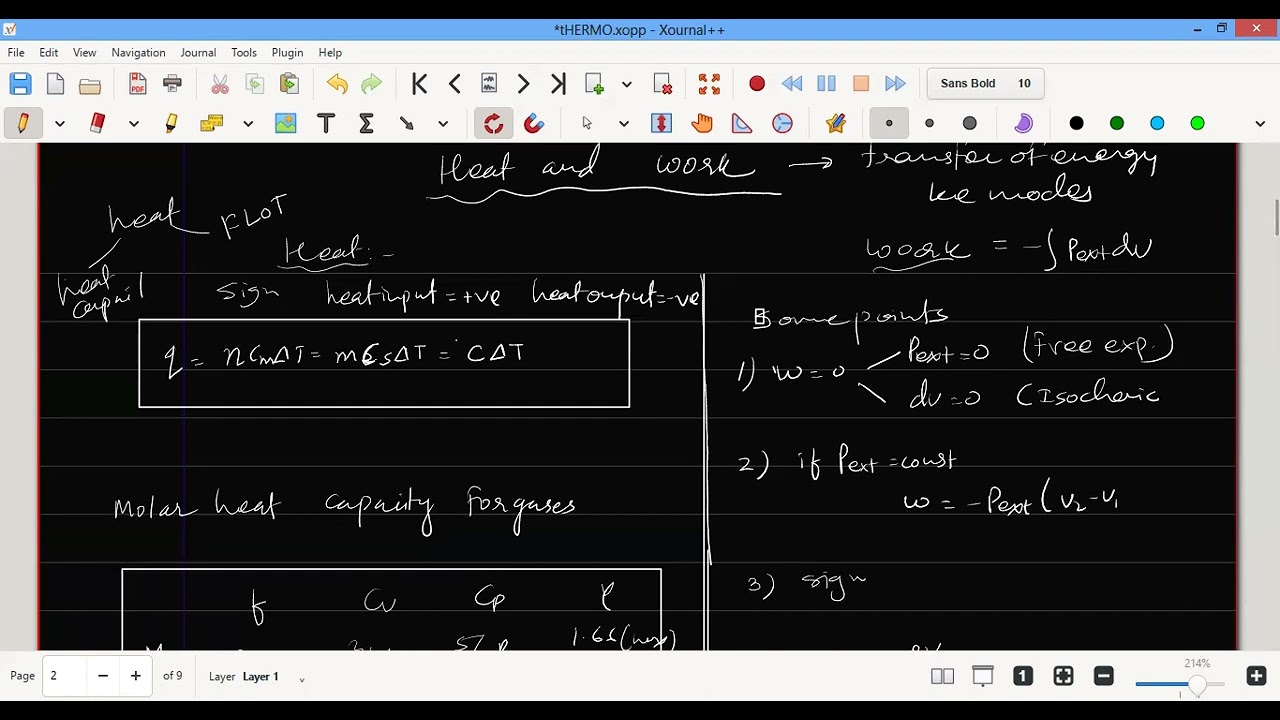 *tHERMO.xopp - Xournal++
File Edit View Navigation Journal Tools Plugin Help
Sans Bold 10
Heat and work → transfer of energy
modes
heat FLOT
Heat:-
work = -∫Pext dv
heat
Sign heat input = +ve heat output = -ve
q = nCmΔT = mCsΔT = CΔT
Some points
1) w = 0
Pext = 0 (free exp.)
dv = 0 (Isochoric
2) if Pext = const
w = -Pext (v2 - v1
Molar heat capacity for gases
3) sign
f Cv Cp
Page 2 of 9 Layer Layer 1 1 214%